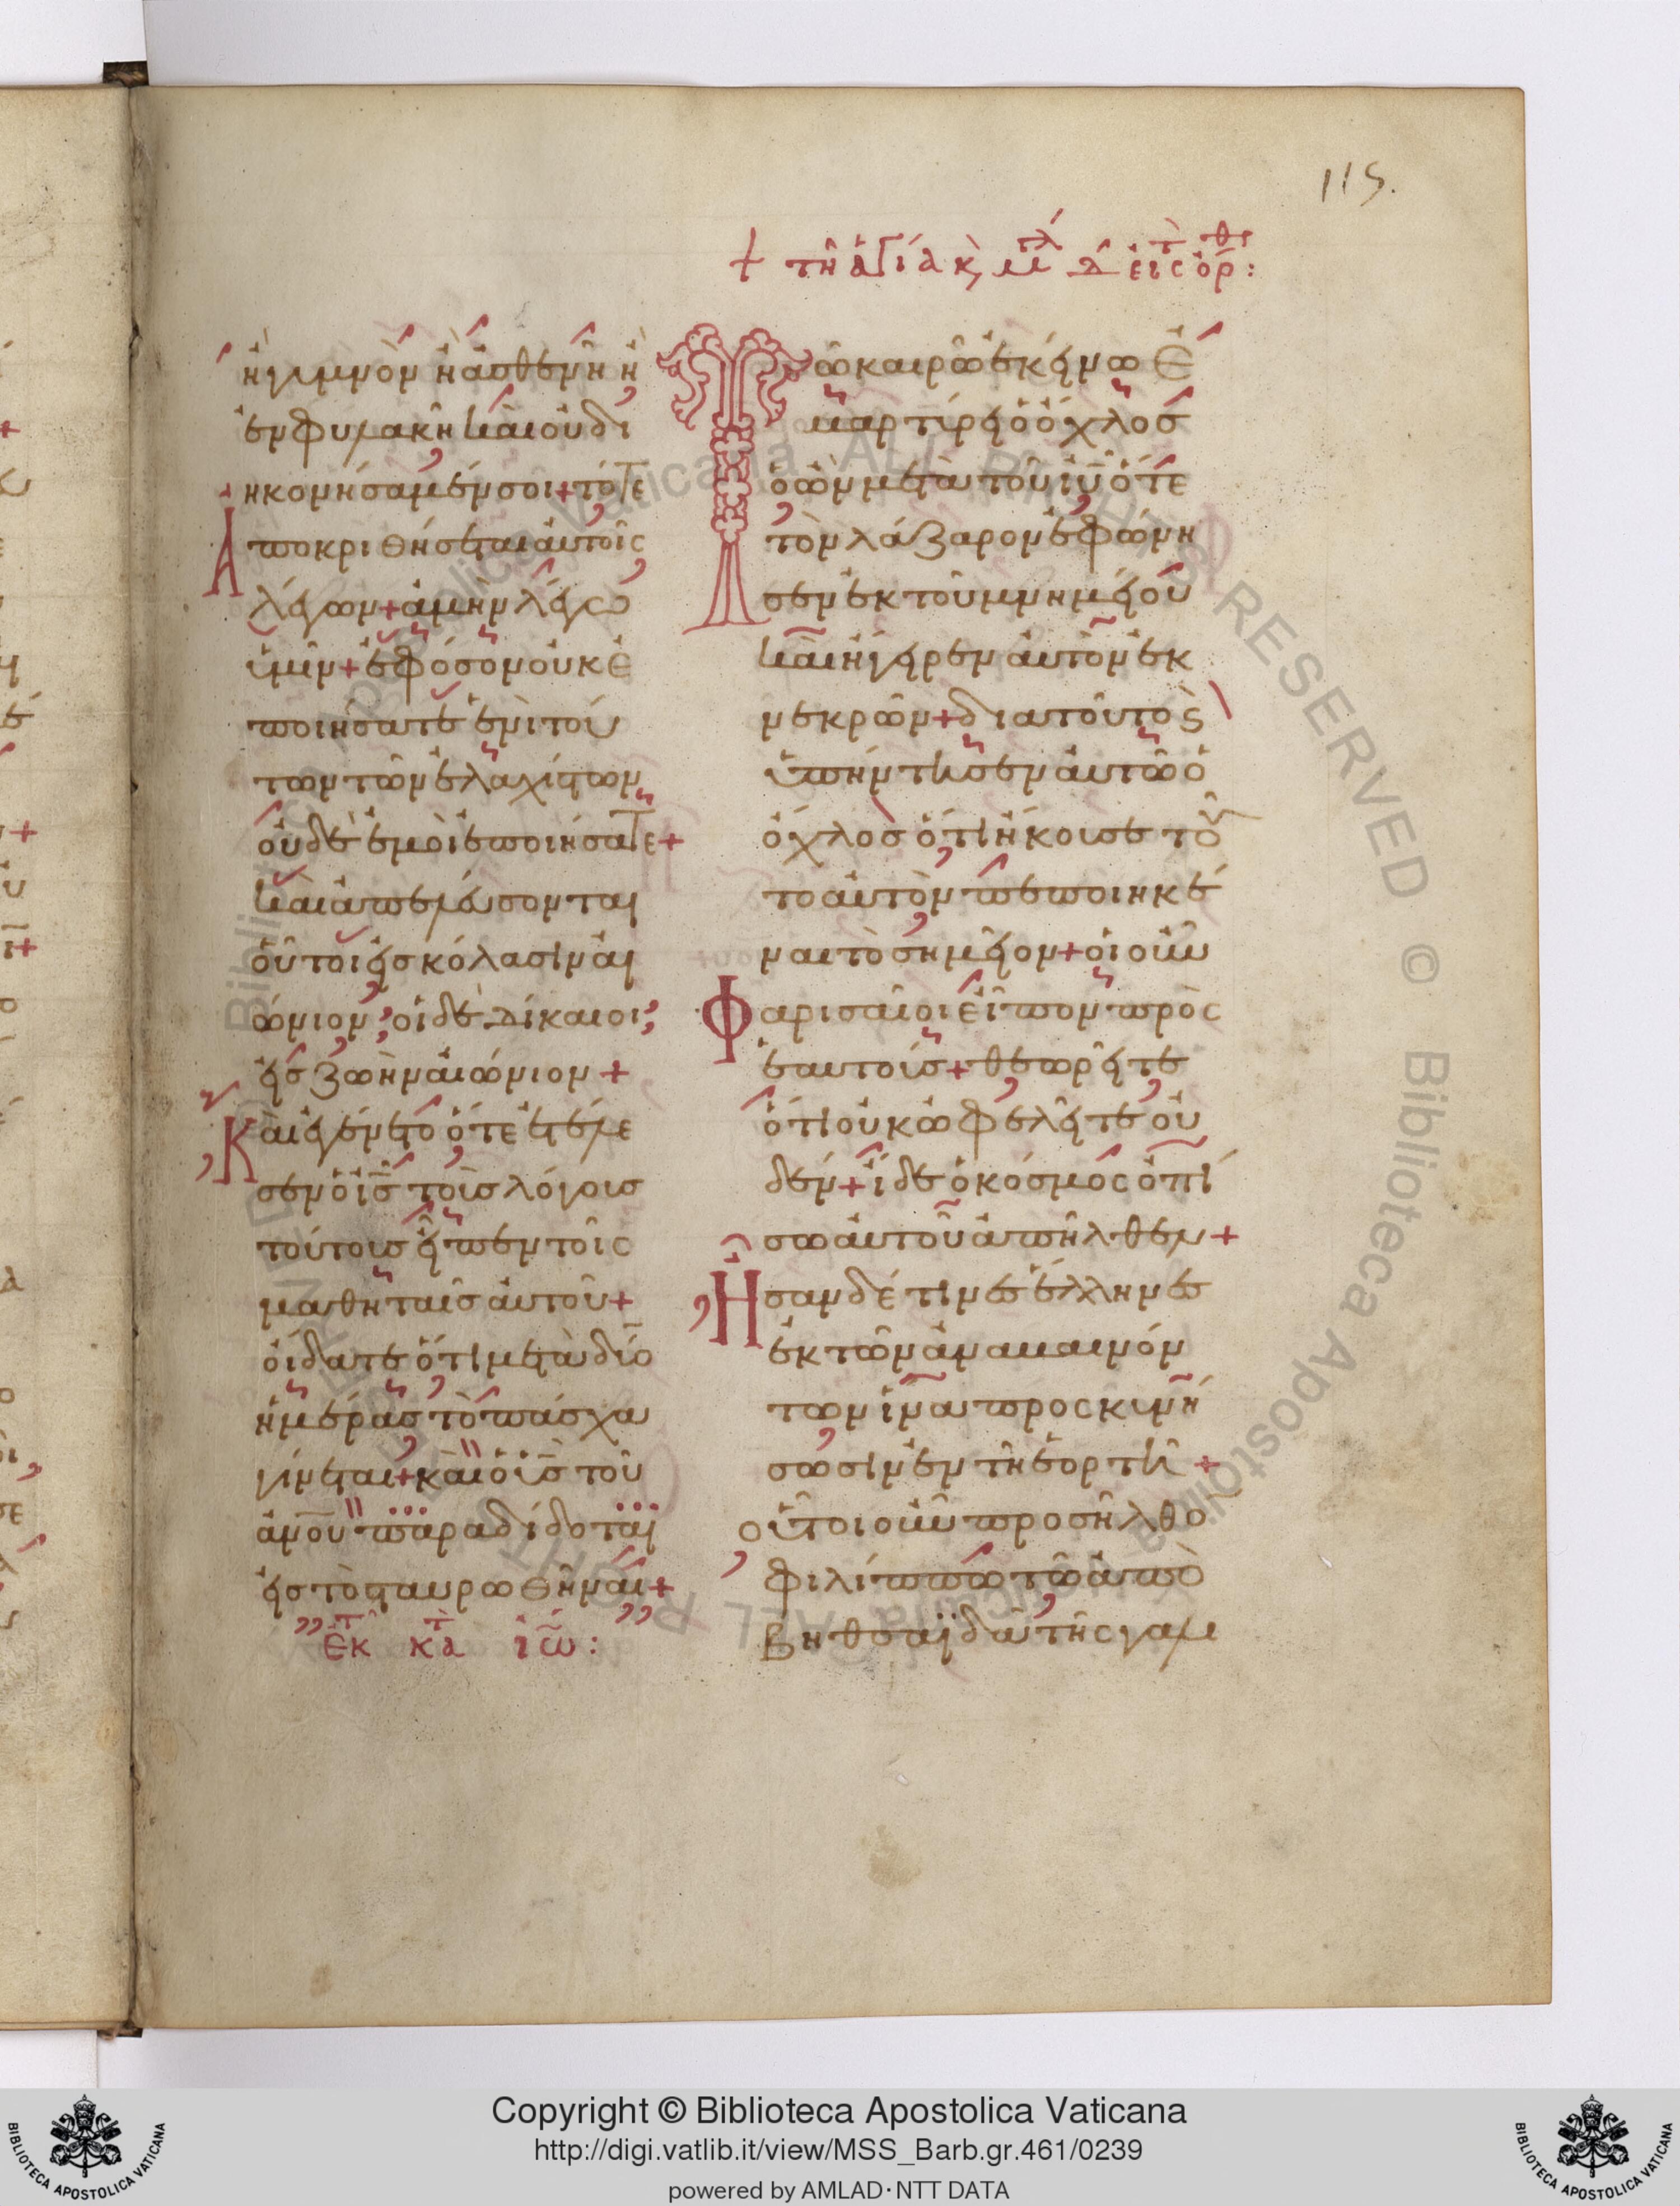 115.
+ τῆ ἁγία κ, μ δ εἰς τ ὀρθ :
ἢ γυμνὸν ἢ ἀσθενῆ ἢ
ἐν φυλακῆ καὶ οὐ δι
ηκονήσαμέν σοι + τότε
Ἀποκριθήσεται αὐτοῖς
λέγων + ἀμὴν λέγω
ὑμῖν + ἐφόσον οὐκ ἐ
ποιήσατε ἑνὶ τού
των τῶν ἐλαχίστων
οὐδὲ ἐμοὶ ἐποιήσατε +
καὶ ἀπελεύσονται
οὗτοι εἰς κόλασιν αἰ
ώνιον· οἱ δὲ δίκαιοι
εἰς ζωὴν αἰώνιον +
Καὶ ἐγένετο ὅτε ἐτέλε
σεν ὁ ις τοὺς λόγοις
τούτοις εἶπεν τοῖς
μαθηταῖς αὐτοῦ +
οἴδατε ὅτι μετὰ δύο
ἡμέρας τὸ πάσχα
γίνεται + καὶ ὁ υς τοῦ
ανου παραδίδοται
εἰς τὸ σταυρωθῆναι +
Ἐκ τ κατὰ ἰω :
Τῶ καιρῶ ἐκείνω ἐ
μαρτύρει ὁ ὄχλος
ὁ ὢν μετ αὐτοῦ ιυ ὅτε
τὸν λάζαρον ἐφώνη
σεν ἐκ τοῦ μνημείου
καὶ ἤγειρεν αὐτὸν ἐκ
νεκρῶν + δια τοῦτο ς
ὑπήντησεν αὐτῶ ὁ
ὄχλος ὅτι ἤκουσε τοῦ
το αὐτὸν πεποιηκέ
ναι τὸ σημεῖον + οἱ οὖν
Φαρισαῖοι εἶπον πρὸς
ἑαυτούς + θεωρεῖτε
ὅτι οὐκ ὠφελεῖτε οὐ
δέν + ἴδε ὁ κόσμος ὀπί
σω αὐτοῦ ἀπῆλθεν +
Ἦσαν δέ τινες ἕλληνες
ἐκ τῶν ἀναβαινόν
των ἵνα προσκυνή
σωσιν ἐν τῆ ἑορτῆ +
οὗτοι οὖν προσῆλθο
φιλίππω τῶ ἀπὸ
βηθσαϊδὰ τῆς γαλι
Copyright © Biblioteca Apostolica Vaticana
http://digi.vatlib.it/view/MSS_Barb.gr.461/0239
powered by AMLAD·NTT DATA
BIBLIOTECA APOSTOLICA VATICANA
BIBLIOTECA APOSTOLICA VATICANA